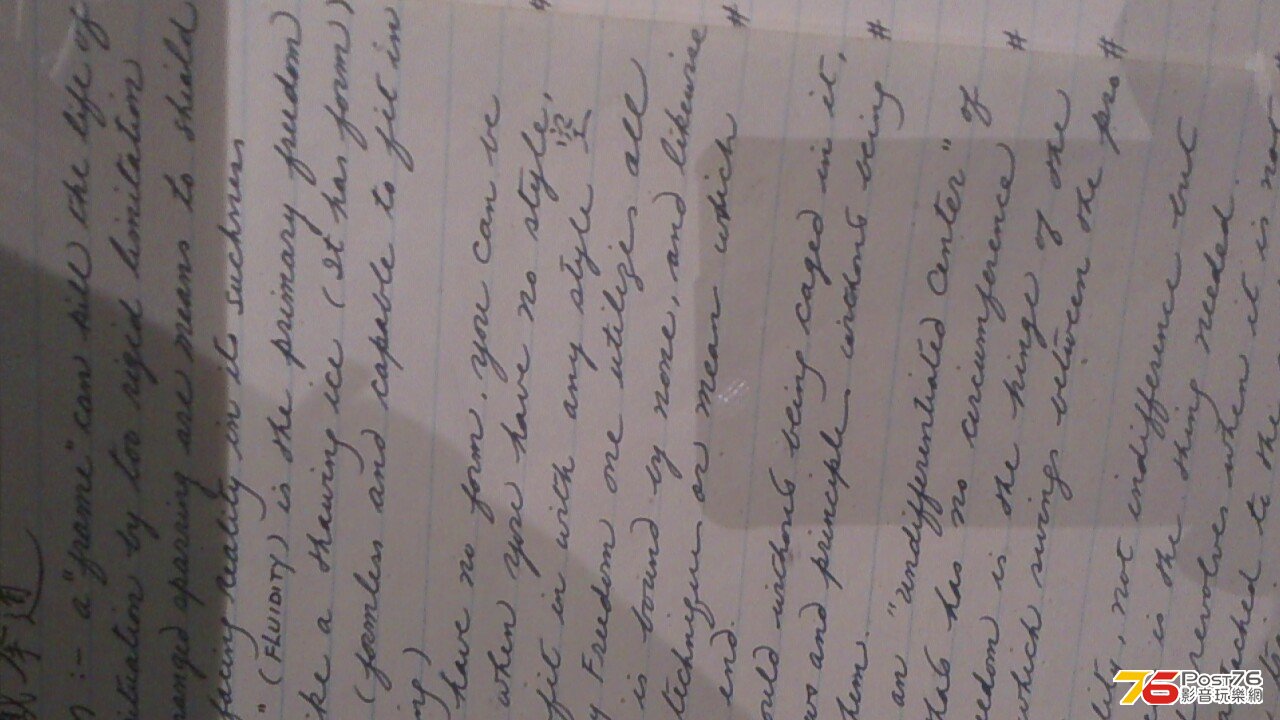 拳道
:- a "frame" can kill the life of
by too rigid limitation
sparring are means to shield
facing reality in its suchness
" (FLUIDITY) is the primary freedom
a thawing ice (it has form)
(formless and capable to fit in #
have no form, you can be
when you have no style,
fit in with any style
Freedom one utilizes all
is bound by none, and likewise #
technique or mean which
end.
without being caged in it,
and principles without being #
them.
an "undifferentiated center" of
that has no circumference #
is the hinge of the
which swings between the pro #
not indifference but
is the thing needed.
revolves when it is not
to the
Post76
影音玩樂網